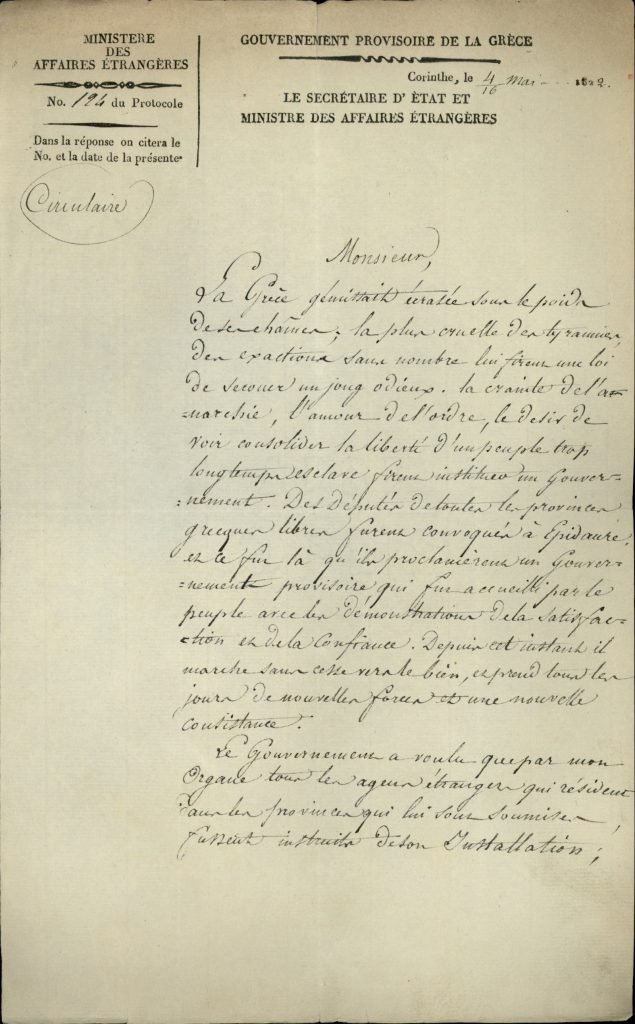 MINISTERE
DES
AFFAIRES ÉTRANGÈRES
No. 124 du Protocole
Dans la réponse on citera le
No. et la date de la présente
Circulaire
GOUVERNEMENT PROVISOIRE DE LA GRÈCE
Corinthe, le 4/16 Mai 1822.
LE SECRÉTAIRE D' ÈTAT ET
MINISTRE DES AFFAIRES ÉTRANGÈRES
Monsieur,
La Grèce gémissait écrasée sous le poids
de ses chaînes; la plus cruelle des tyrannies,
des exactions sans nombre lui firent une loi
de secouer un joug odieux. la crainte de l'a=
=narchie, l'amour de l'ordre, le desir de
voir consolider la liberté d'un peuple trop
longtemps esclave firent instituer un Gouver=
=nement. Des Députés de toutes les provinces
grecques libres furent convoqués à Epidaure,
et ce fut là qu'ils proclamèrent un Gouver=
=nement provisoire qui fut accueilli par le
peuple avec les démonstrations de la satisfac=
=tion et de la confiance. Depuis cet instant il
marche sans cesse vers le bien, et prend tous les
jours de nouvelles forces et une nouvelle
consistance.
Le Gouvernement a voulu que par mon
Organe tous les agens étrangers qui résident
dans les provinces qui lui sont soumises,
fussent instruits de son Installation;